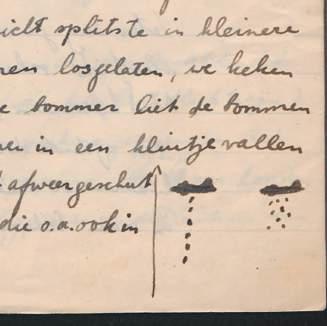 zicht splitste in kleinere
ren losgelaten, we keken
e bommer liet de bommen
in een kluitje vallen
afweergeschut
die o.a. ook in